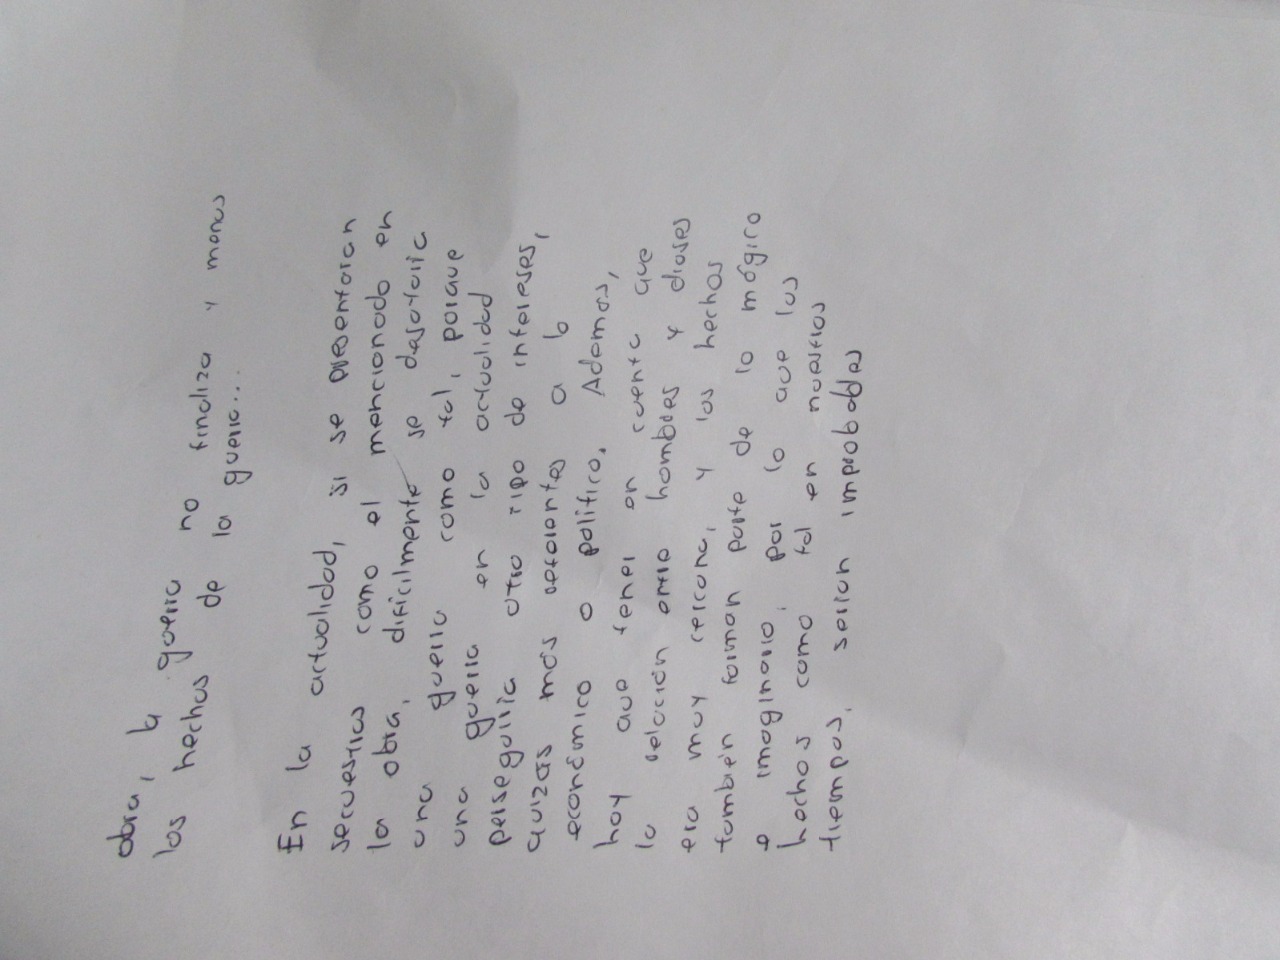 obra, la guerra no finaliza y menos
los hechos de la guerra...
En la actualidad, si se presentaran
secuestros como el mencionado en
la obra, dificilmente se desataria
una guerra como tal, porque
una guerra en la actualidad
perseguiria otro tipo de intereses,
quizas más referentes a lo
económico o político. Ademas,
hay que tener en cuenta que
la relación entre hombres y dioses
era muy cercana, y los hechos
tambien forman parte de lo mágico
e imaginario, por lo que los
hechos como tal en nuestros
tiempos, serian improbables